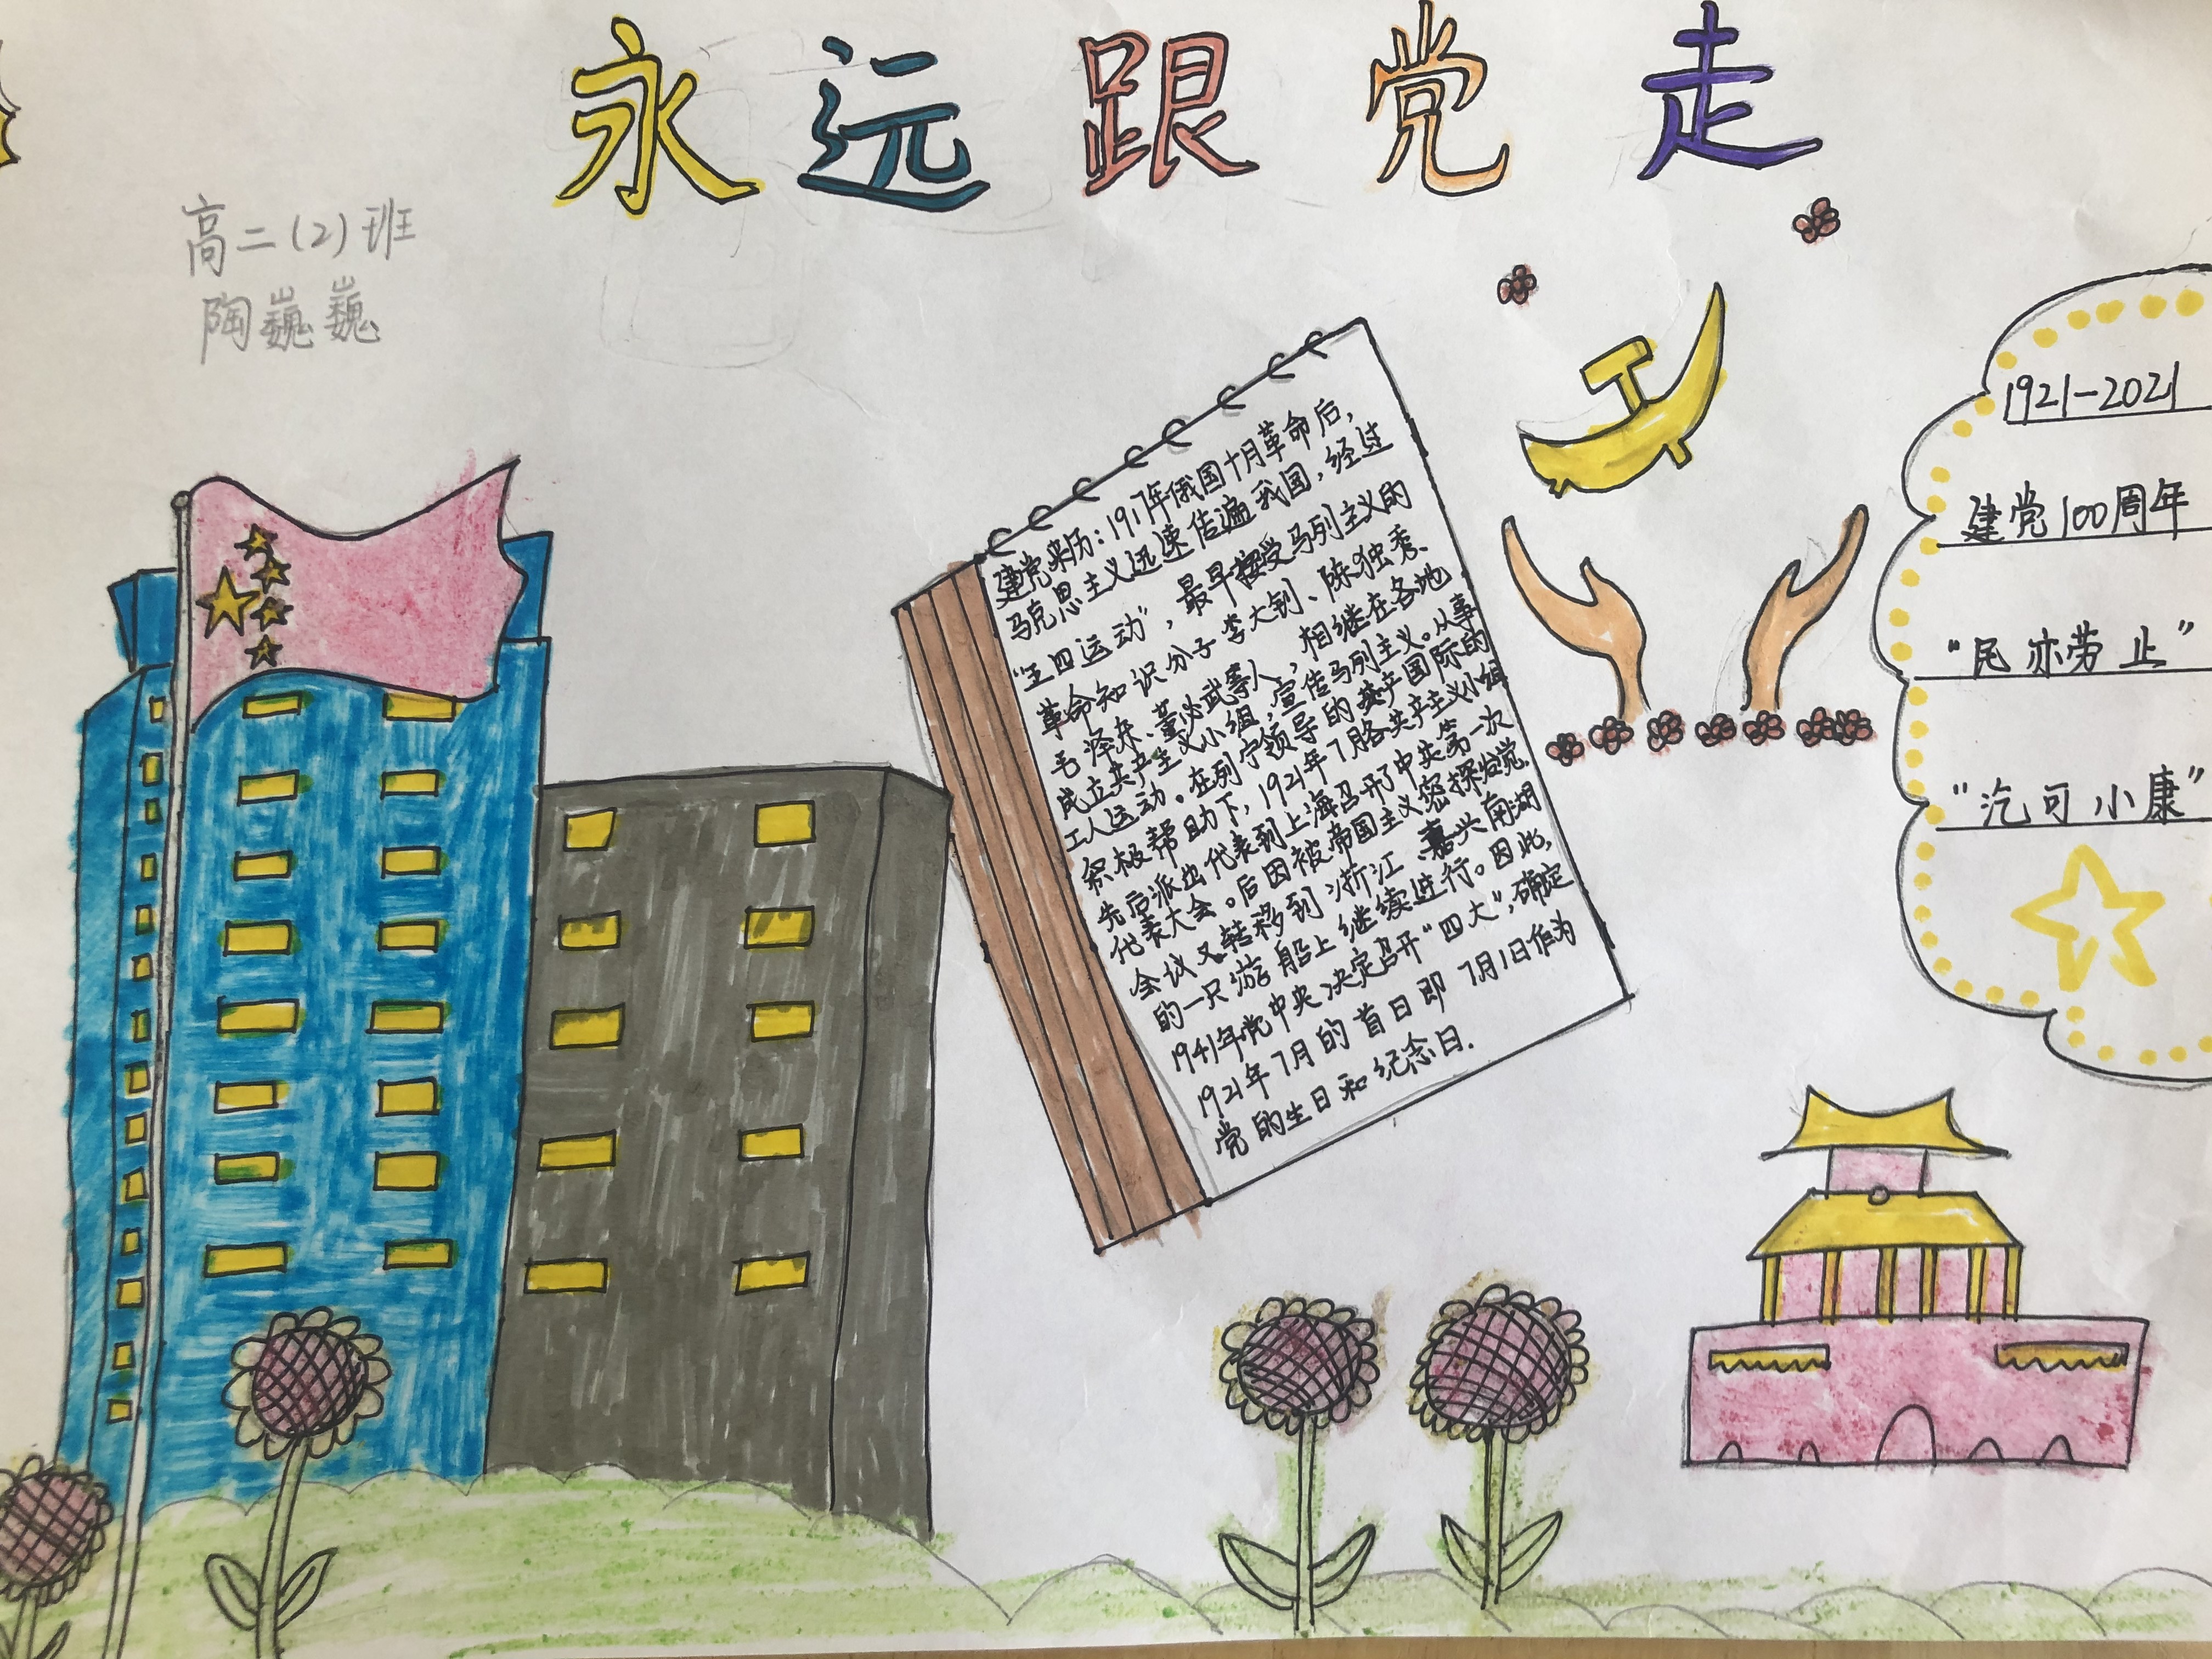 永远跟党走
高二(2)班
陶巍巍
建党来历:1917年俄国十月革命后,
马克思主义迅速传遍我国,经过
"五四运动",最早接受马列主义的
革命知识分子李大钊、陈独秀、
毛泽东、董必武等人,相继在各地
成立共产主义小组,宣传马列主义。从事
工人运动。在列宁领导的共产国际的
积极帮助下,1921年7月各共产主义小组
先后派出代表到上海召开了中共第一次
代表大会。后因被帝国主义密探发觉.
会议又转移到浙江、嘉兴南湖
的一只游船上继续进行。因此,
1941年党中央决定召开"四大",确定
1921年7月的首日即7月1日作为
党的生日和纪念日.
1921-2021
建党100周年
"民亦劳止"
"汔可小康"